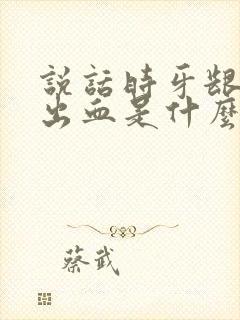 説話時牙齦
出血是什麼
蔡武